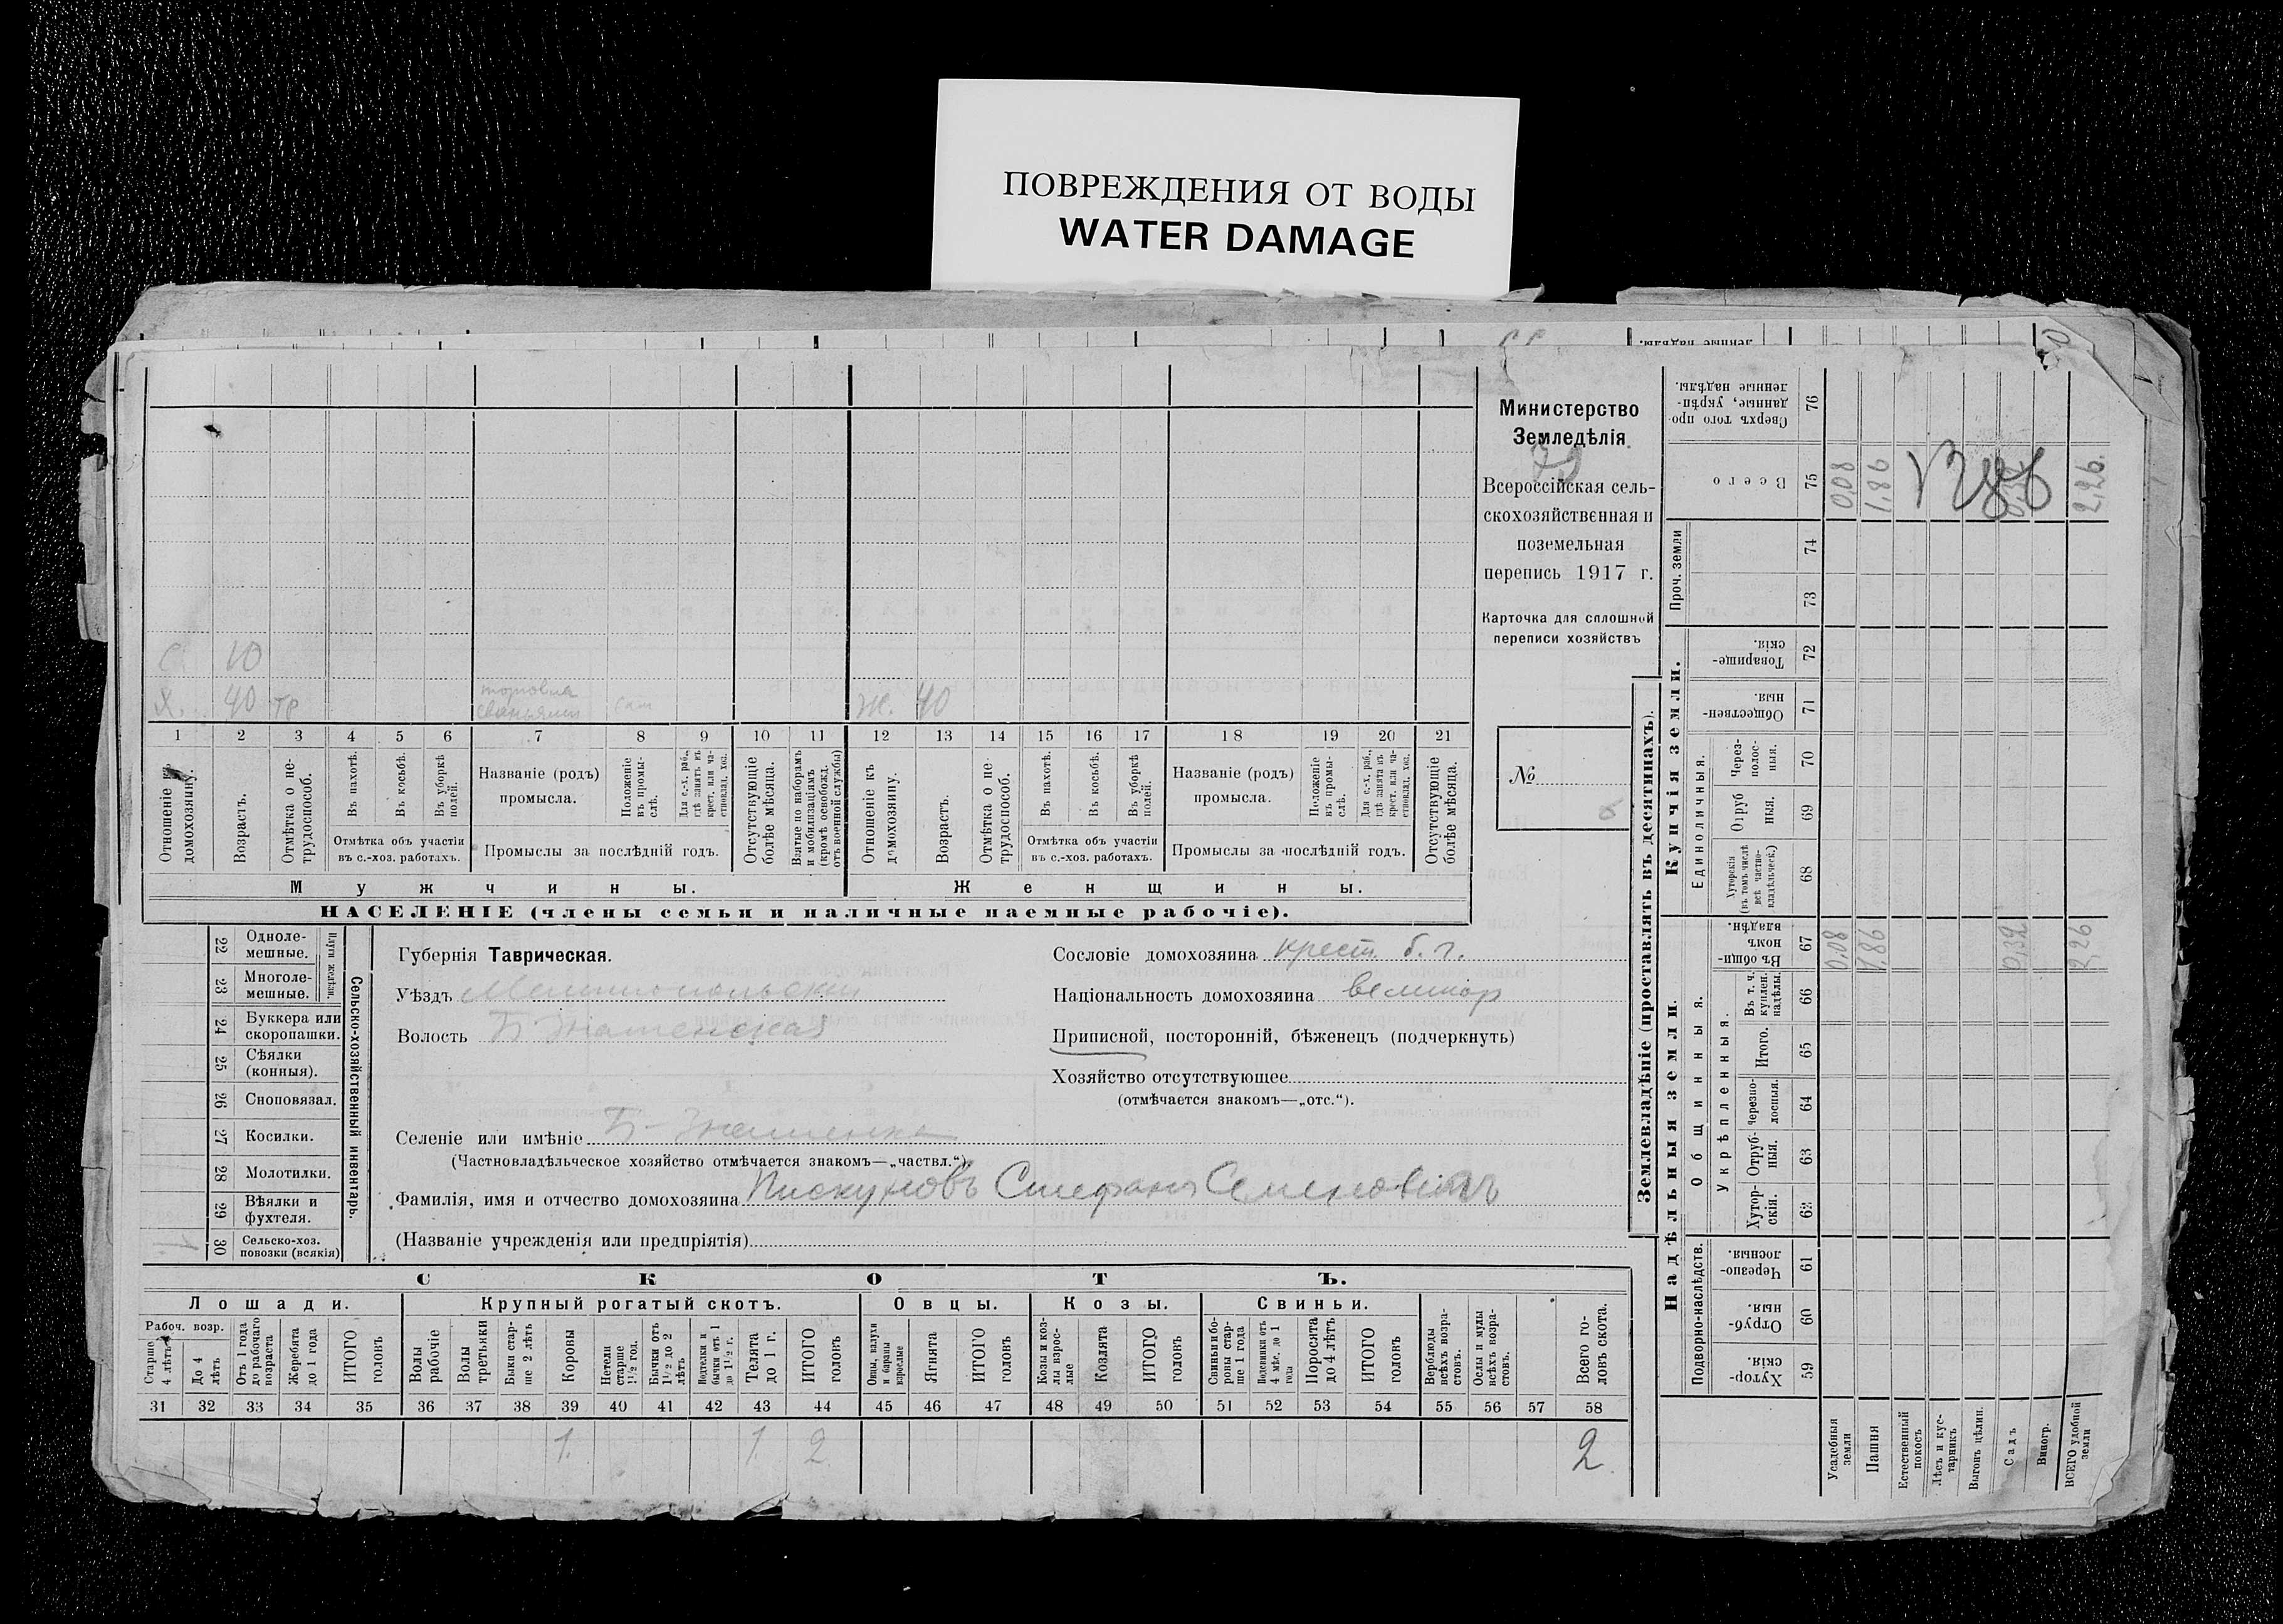 ПОВРЕЖДЕНИЯ ОТ ВОДЫ
WATER DAMAGE
Министерство
Земледѣлія
Всероссійская сель-
скохозяйственная и
поземельная
перепись 1917 г.
Карточка для сплошной
переписи хозяйствъ
№
6
С. 10
Х. 40 тр торговла сам Ж. 40
1 2 3 4 5 6 7 8 9 10 11 12 13 14 15 16 17 18 19 20 21
Отношеніе къ домохозяину.
Возрастъ.
Отмѣтка о не-трудоспособ.
Въ пахотѣ.
Въ косьбѣ.
Въ уборкѣ полей.
Отмѣтка объ участіи
въ с.-хоз. работахъ.
Названіе (родъ)
промысла.
Положеніе въ промы-слѣ.
Для с.-х. раб., гдѣ занятъ въ крест. или ча-стновлад. хоз.
Промыслы за послѣдній годъ.
Отсутствующіе болѣе мѣсяца.
Взятые по наборамъ и мобилизаціямъ (кромѣ освобожд. отъ военной службы)
Отношеніе къ домохозяину.
Возрастъ.
Отмѣтка о не-трудоспособ.
Въ пахотѣ.
Въ косьбѣ.
Въ уборкѣ полей.
Отмѣтка объ участіи
въ с.-хоз. работахъ.
Названіе (родъ)
промысла.
Положеніе въ промы-слѣ.
Для с.-х. раб., гдѣ занята въ крест. или ча-стновлад. хоз.
Промыслы за послѣдній годъ.
Отсутствующіе болѣе мѣсяца.
Мужчины. Женщины.
НАСЕЛЕНІЕ (члены семьи и наличные наемные рабочіе).
Сельско-хозяйственный инвентарь.
Плуги желѣзн.
22 Одноле-мешные.
23 Многоле-мешные.
24 Буккера или скоропашки.
25 Сѣялки (конныя).
26 Сноповязал.
27 Косилки.
28 Молотилки.
29 Вѣялки и фухтеля.
30 Сельско-хоз. повозки (всякія)
1
Губернія Таврическая.
Уѣздъ Мелитопольскій
Волость Б-Знаменская
Селеніе или имѣніе Б-Знаменка
(Частновладѣльческое хозяйство отмѣчается знакомъ—„частвл.“).
Фамилія, имя и отчество домохозяина Пискуновъ Стефанъ Семеновичъ
(Названіе учрежденія или предпріятія)
Сословіе домохозяина крест. б. г.
Національность домохозяина великор
Приписной, посторонній, бѣженецъ (подчеркнуть)
Хозяйство отсутствующее
(отмѣчается знакомъ—„отс.“).
СКОТЪ.
Лошади. Крупный рогатый скотъ. Овцы. Козы. Свиньи.
Рабоч. возр.
Старше 4 лѣтъ
До 4 лѣтъ
Отъ 1 года до рабочаго возраста
Жеребята до 1 года
ИТОГО головъ
Волы рабочіе
Волы третьяки
Быки стар-ше 2 лѣтъ
Коровы
Нетели старше 1½ год.
Бычки отъ 1½ до 2 лѣтъ
Подтелки и бычки отъ 1 до 1½ г.
Телята до 1 г.
ИТОГО головъ
Овцы, валухи и бараны взрослые
Ягнята
ИТОГО головъ
Козы и коз-лы взрос-лые
Козлята
ИТОГО головъ
Свиньи и бо-ровы стар-ше 1 года
Подсвинки отъ 4 мѣс. до 1 года
Поросята до 4 лѣтъ
ИТОГО головъ
Верблюды всѣхъ возра-стовъ.
Ослы и мулы всѣхъ возра-стовъ.
Всего го-ловъ скота.
31 32 33 34 35 36 37 38 39 40 41 42 43 44 45 46 47 48 49 50 51 52 53 54 55 56 57 58
1. 1. 2. 2.
Землевладѣніе (проставлять въ десятинахъ).
Надѣльныя земли. Купчія земли. Проч. земли
Подворно-наслѣдств.
Общинныя.
Укрѣпленныя.
Единоличныя.
59 Хутор-скія.
60 Отруб-ныя.
61 Черезпо-лосныя.
62 Хутор-скія.
63 Отруб-ныя.
64 Черезпо-лосныя.
65 Итого.
66 Въ т. ч. куплен. надѣлы.
67 Въ общи-номъ владѣн.
68 Хуторскія (въ томъ числѣ всѣ частно-владѣльческ.)
69 Отруб ныя.
70 Через-полос-ныя.
71 Обществен-ныя.
72 Товарище-скія.
73
74
75 Всего
76 Сверхъ того про-данные, укрѣп-ленные надѣлы.
Усадебныя земли 0,08 0,08
Пашня 1,86 1,86
Естественный покосъ
Лѣсъ и кус-тарникъ
Выгонъ цѣлин.
Садъ 0,32
Виногр.
ВСЕГО удобной земли 2,26 2,26.